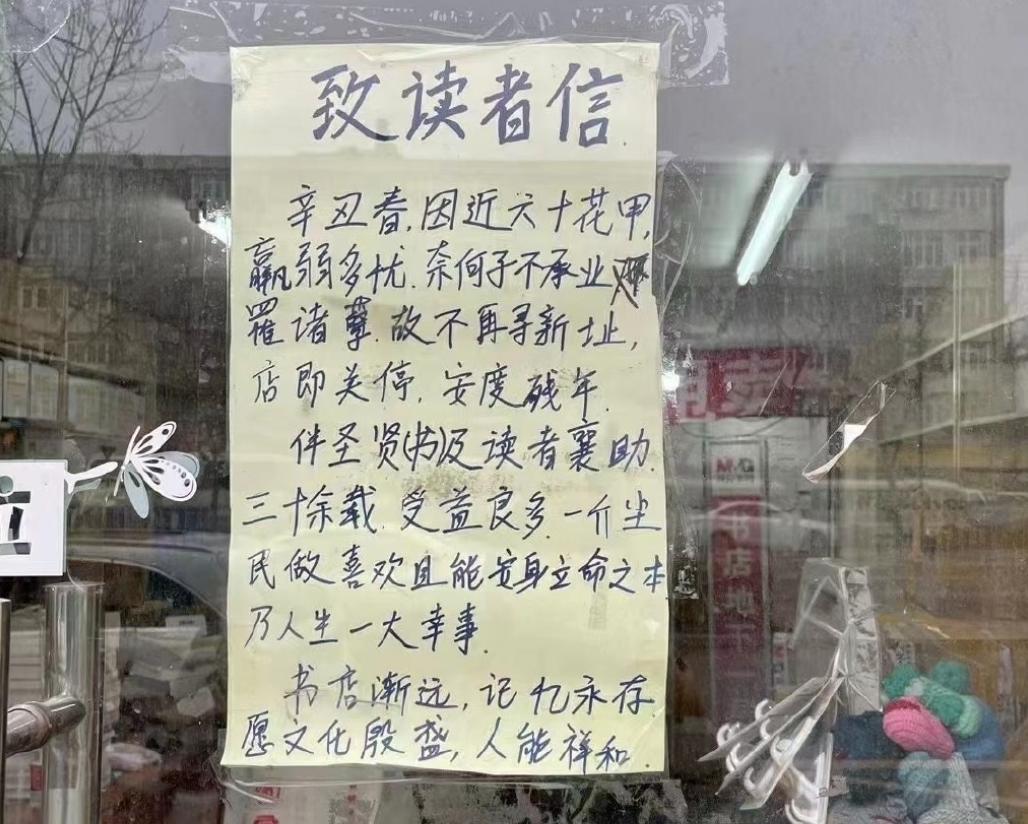 致读者信.
辛丑春,因近六十花甲,
羸弱多忧.奈何子不承业
罹诸孽.故不再寻新址,
店即关停.安度残年.
伴圣贤(书)及读者襄助.
三十余载.受益良多.一介尘
民做喜欢且能安身立命之本
乃人生一大幸事.
书店渐远,记忆永存.
愿文化殷盛,人能祥和.
M&G
书店地下